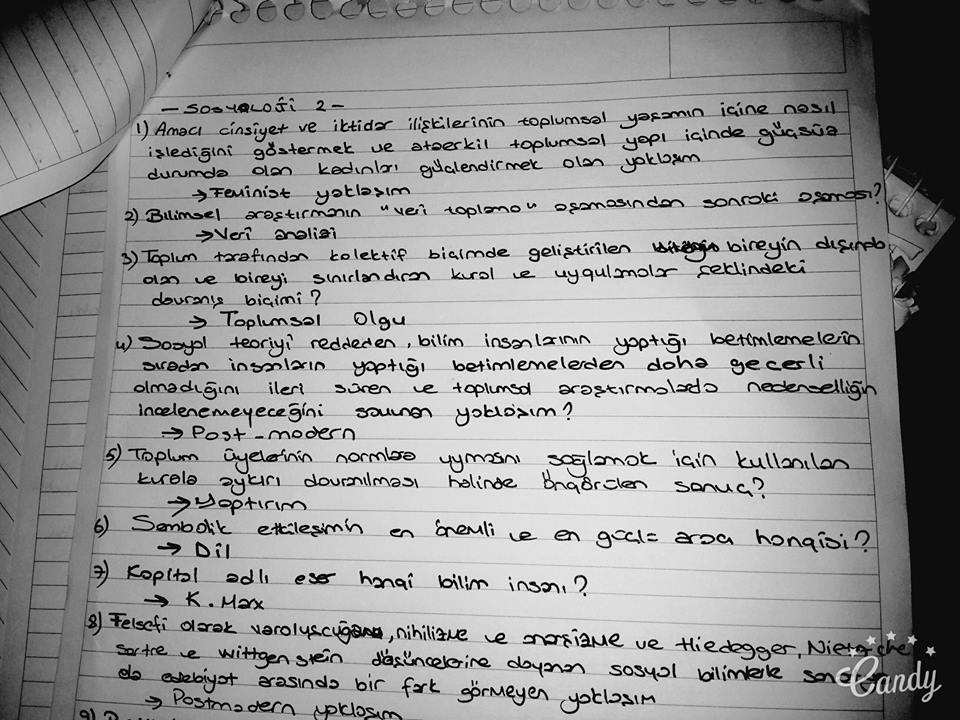 - SOSYOLOJİ 2 -
1) Amacı cinsiyet ve iktidar ilişkilerinin toplumsal yaşamın içine nasıl
işlediğini göstermek ve ataerkil toplumsal yapı içinde güçsüz
durumda olan kadınları güçlendirmek olan yaklaşım
→ Feminist yaklaşım
2) Bilimsel araştırmanın "veri toplama" aşamasından sonraki aşaması?
→ Veri analizi
3) Toplum tarafından kolektif biçimde geliştirilen bireyin dışında
olan ve bireyi sınırlandıran kural ve uygulamalar şeklindeki
davranış biçimi?
→ Toplumsal Olgu
4) Sosyal teoriyi reddeden, bilim insanlarının yaptığı betimlemelerin
sıradan insanların yaptığı betimlemelerden daha geçerli
olmadığını ileri süren ve toplumsal araştırmalarda nedenselliğin
incelenemeyeceğini savunan yaklaşım?
→ Post-modern
5) Toplum üyelerinin normlara uymasını sağlamak için kullanılan
kurala aykırı davranılması halinde öngörülen sonuç?
→ Yaptırım
6) Sembolik etkileşimin en önemli ve en güçlü aracı hangisi?
→ Dil
7) Kapital adlı eser hangi bilim insanı?
→ K. Marx
8) Felsefi olarak varoluşcuğa, nihilizme ve anarşizme ve Hiedegger, Nietzche
Sartre ve Wittgenstein düşüncelerine dayanan sosyal bilimlerle
da edebiyat arasında bir fark görmeyen yaklaşım
→ Postmodern yaklaşım
9)
Candy